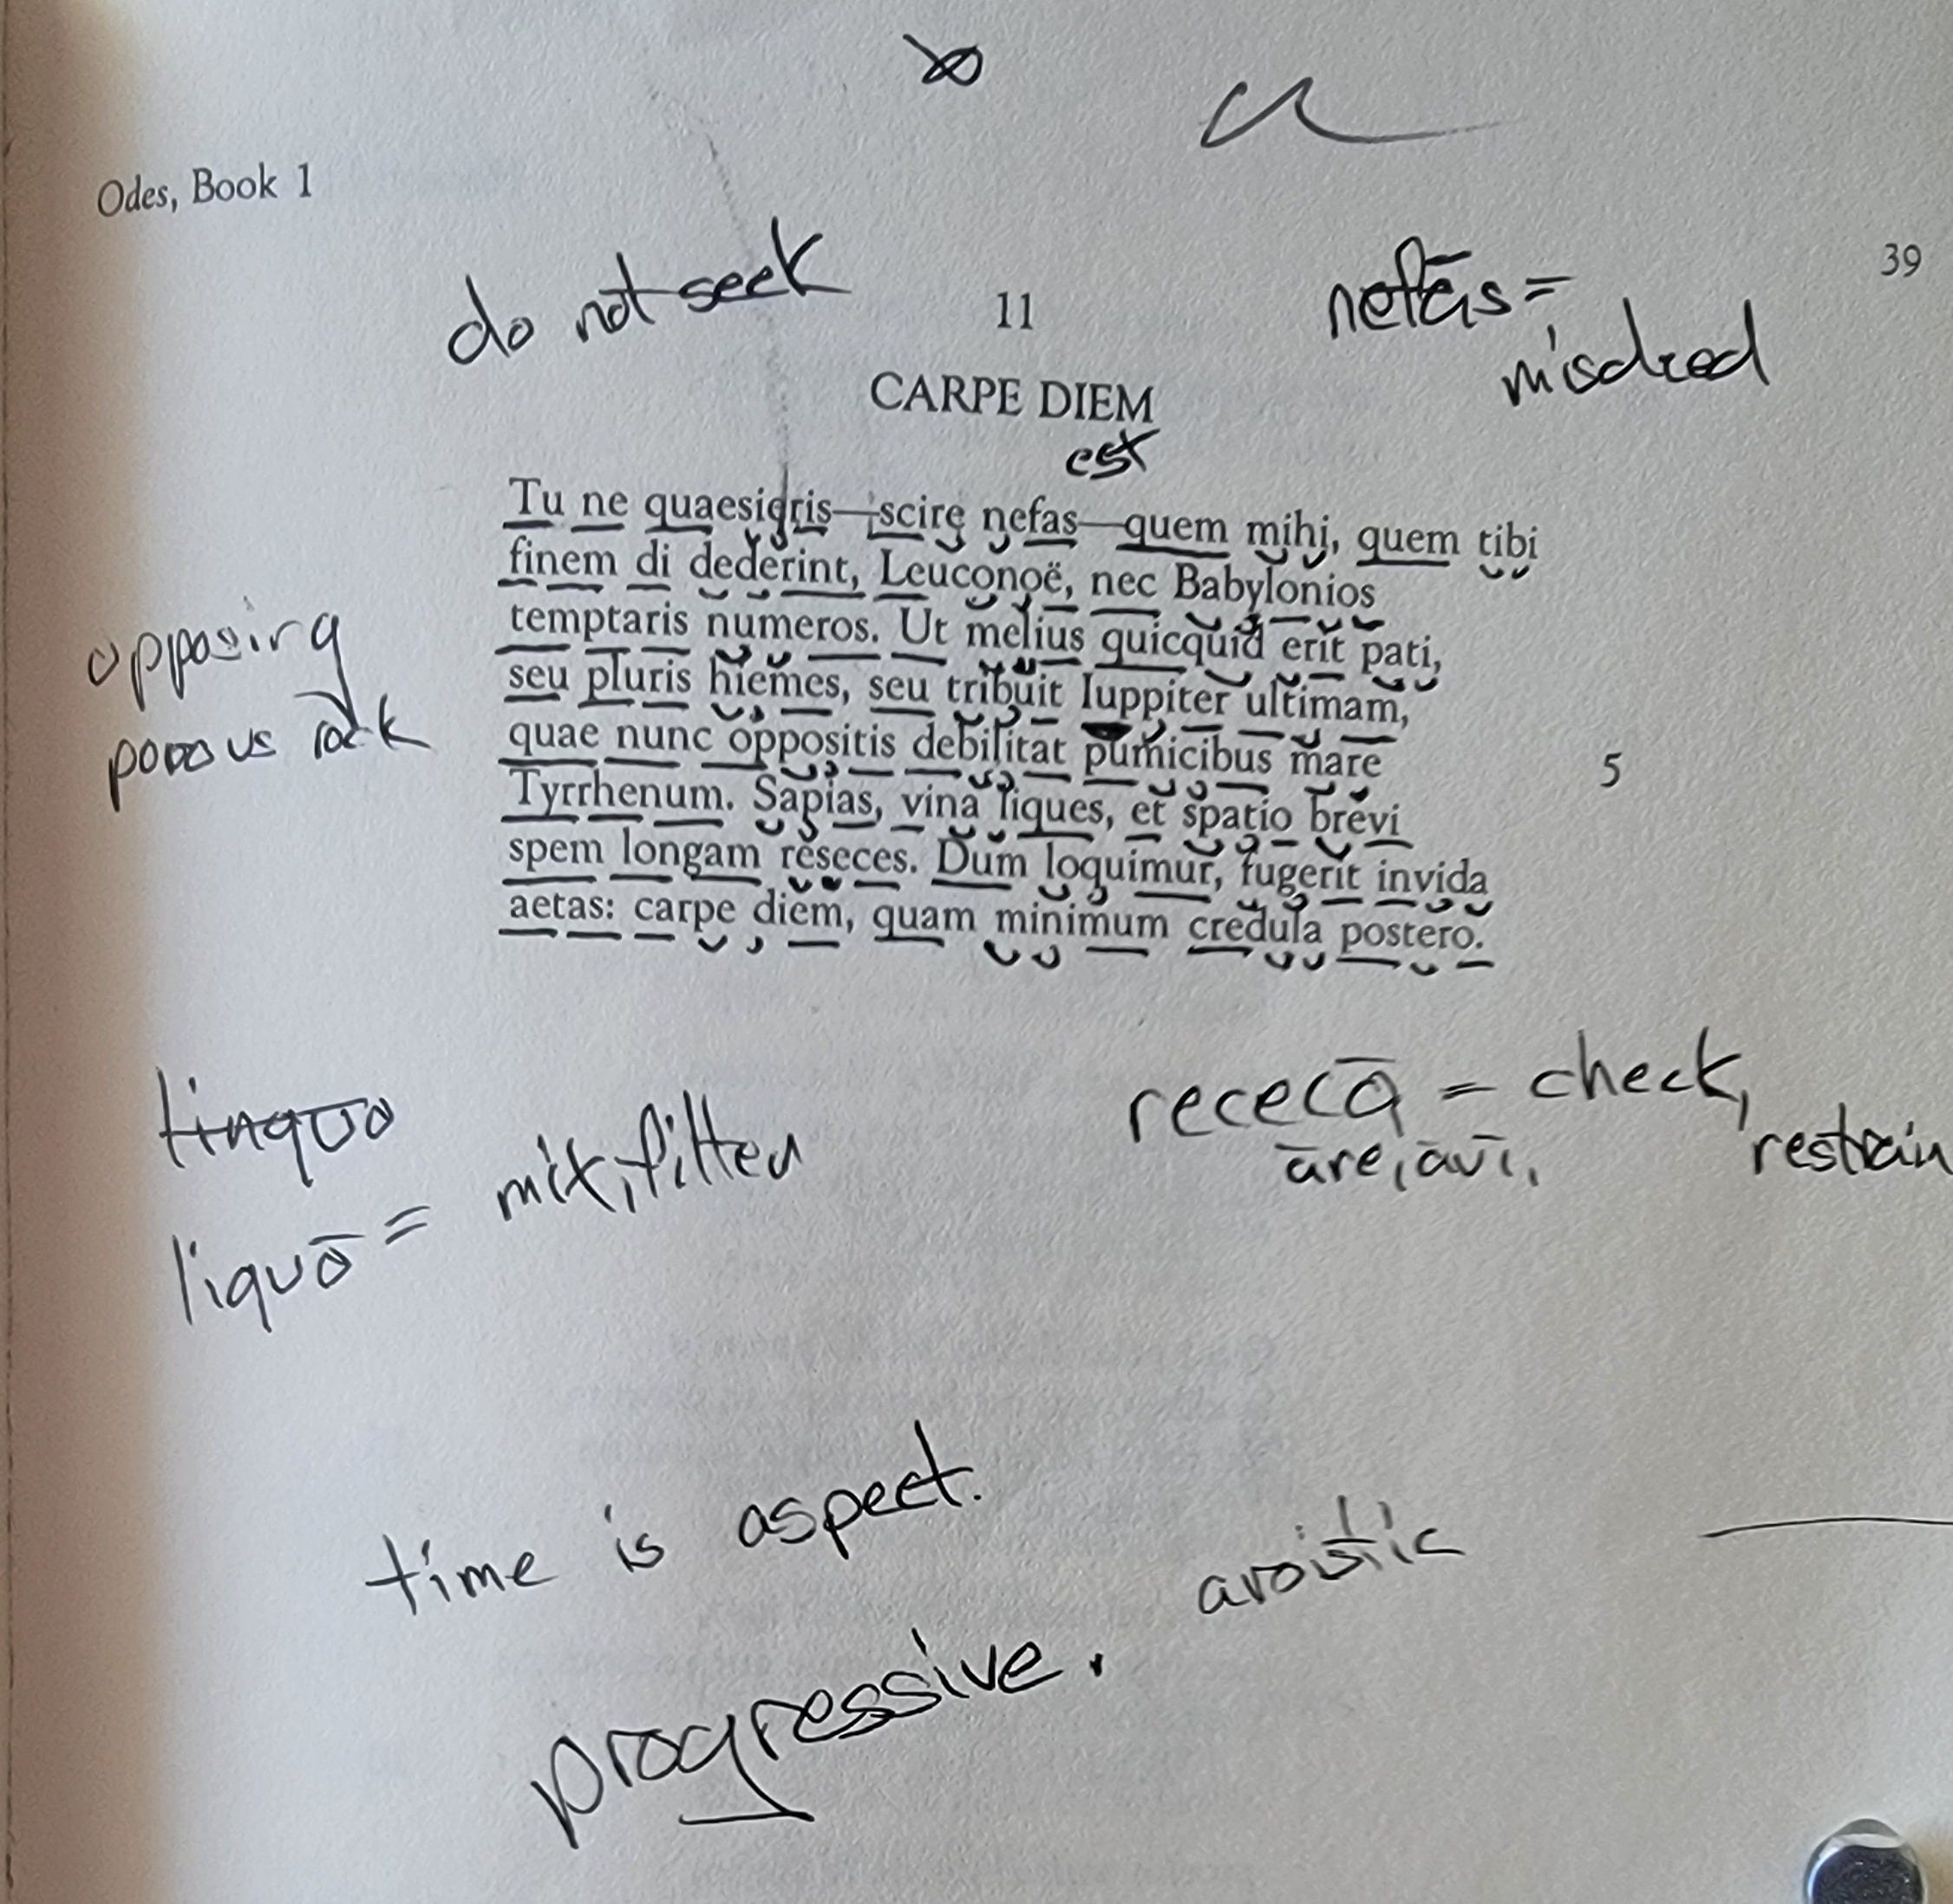 Odes, Book 1
39
do not seek
nefās =
misdeed
11
CARPE DIEM
est
Tu ne quaesieris—scire nefas—quem mihi, quem tibi
finem di dederint, Leuconoë, nec Babylonios
temptaris numeros. Ut melius quicquid erit pati,
seu pluris hiemes, seu tribuit Iuppiter ultimam,
quae nunc oppositis debilitat pumicibus mare
5
Tyrrhenum. Sapias, vina liques, et spatio brevi
spem longam reseces. Dum loquimur, fugerit invida
aetas: carpe diem, quam minimum credula postero.
opposing
porous rock
linquo
liquō = mix, filter
receco = check,
āre, āvī, restrain
time is aspect.
aroistic
progressive.